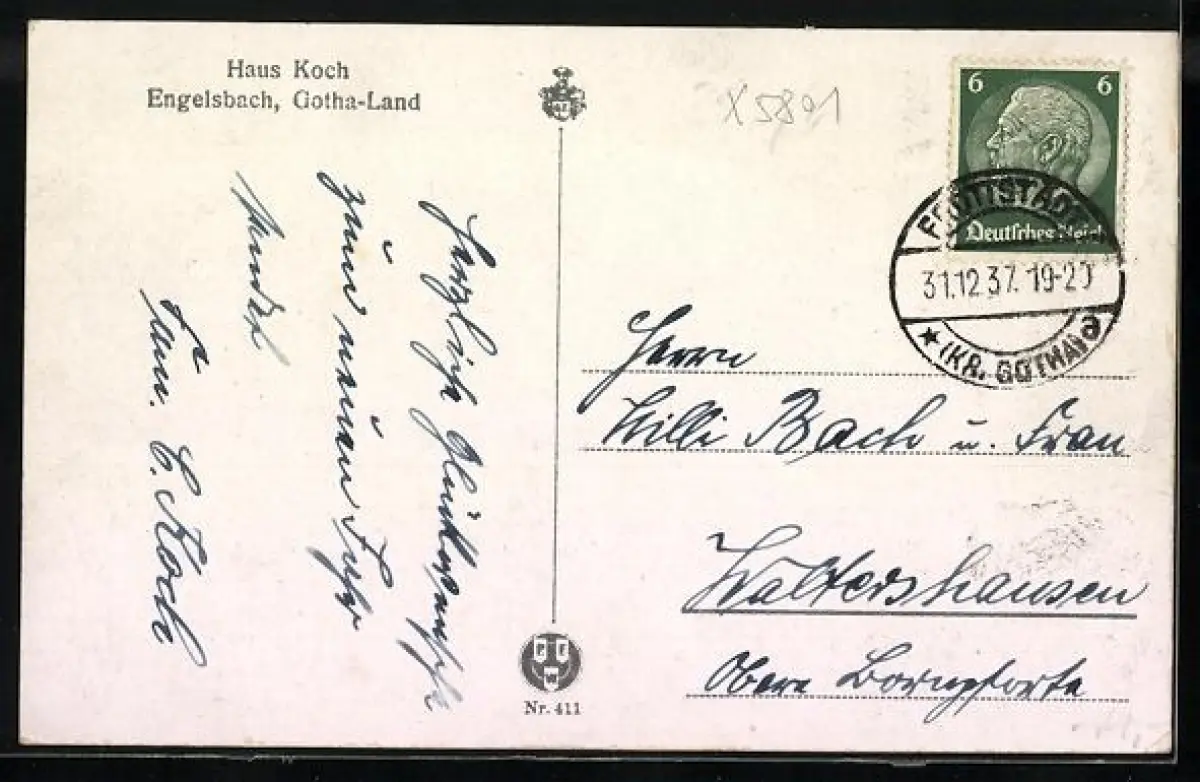 Haus Koch
Engelsbach, Gotha-Land
X5801
6 6
Deutsches Reich
FRÖTTSTÄDT
31.12.37.19-20
* (KR. GOTHA) a
Herzliche Glückwünsche
zum neuen Jahr
sendet
Fam. E. Koch
Herrn
Willi Bach u. Frau
Waltershausen
Obere Bornpforte
P F
W
Nr. 411